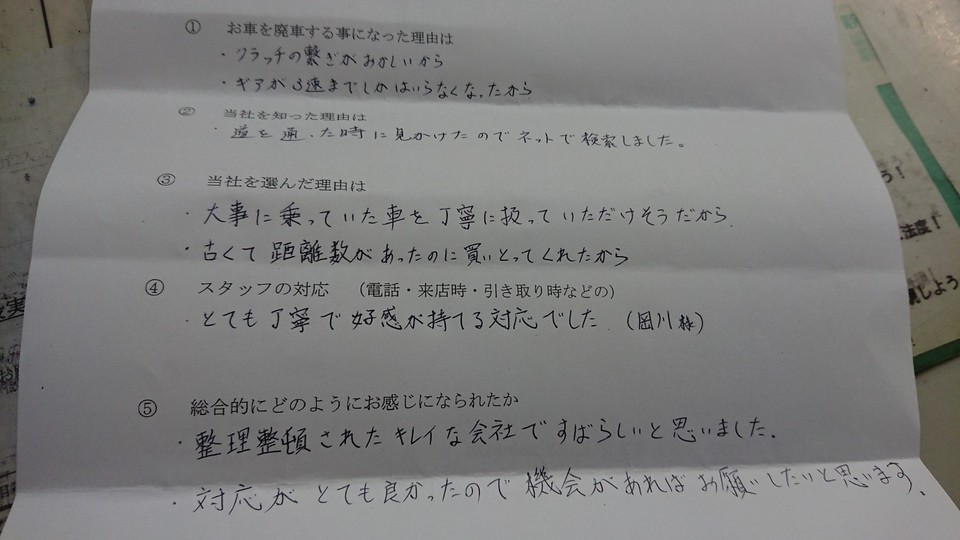 ① お車を廃車する事になった理由は
・クラッチの繋ぎがおかしいから
・ギアが3速までしかはいらなくなったから
② 当社を知った理由は
・道を通った時に見かけたのでネットで検索しました。
③ 当社を選んだ理由は
・大事に乗っていた車を丁寧に扱っていただけそうだから
・古くて距離数があったのに買いとってくれたから
④ スタッフの対応 （電話・来店時・引き取り時などの）
・とても丁寧で好感が持てる対応でした (岡川様)
⑤ 総合的にどのようにお感じになられたか
・整理整頓されたキレイな会社ですばらしいと思いました。
・対応がとても良かったので機会があればお願いしたいと思います。
う！
注度！
しよう